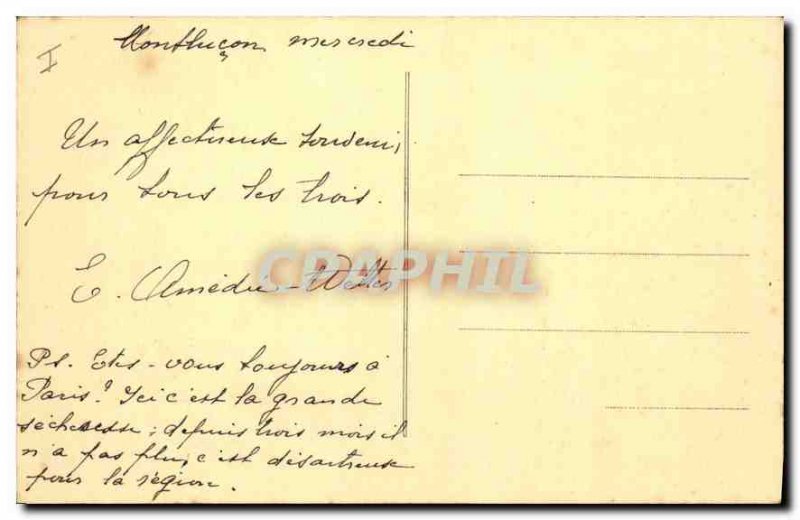 I
Montluçon mercredi
Un affectueuse souvenir
pour tous les trois.
E. Amédée-
CPAPHIL
Ps. Etes-vous toujours à
Paris? Ici c'est la grande
sécheresse; depuis trois mois il
n'a pas plu, c'est désastreuse
pour la région.